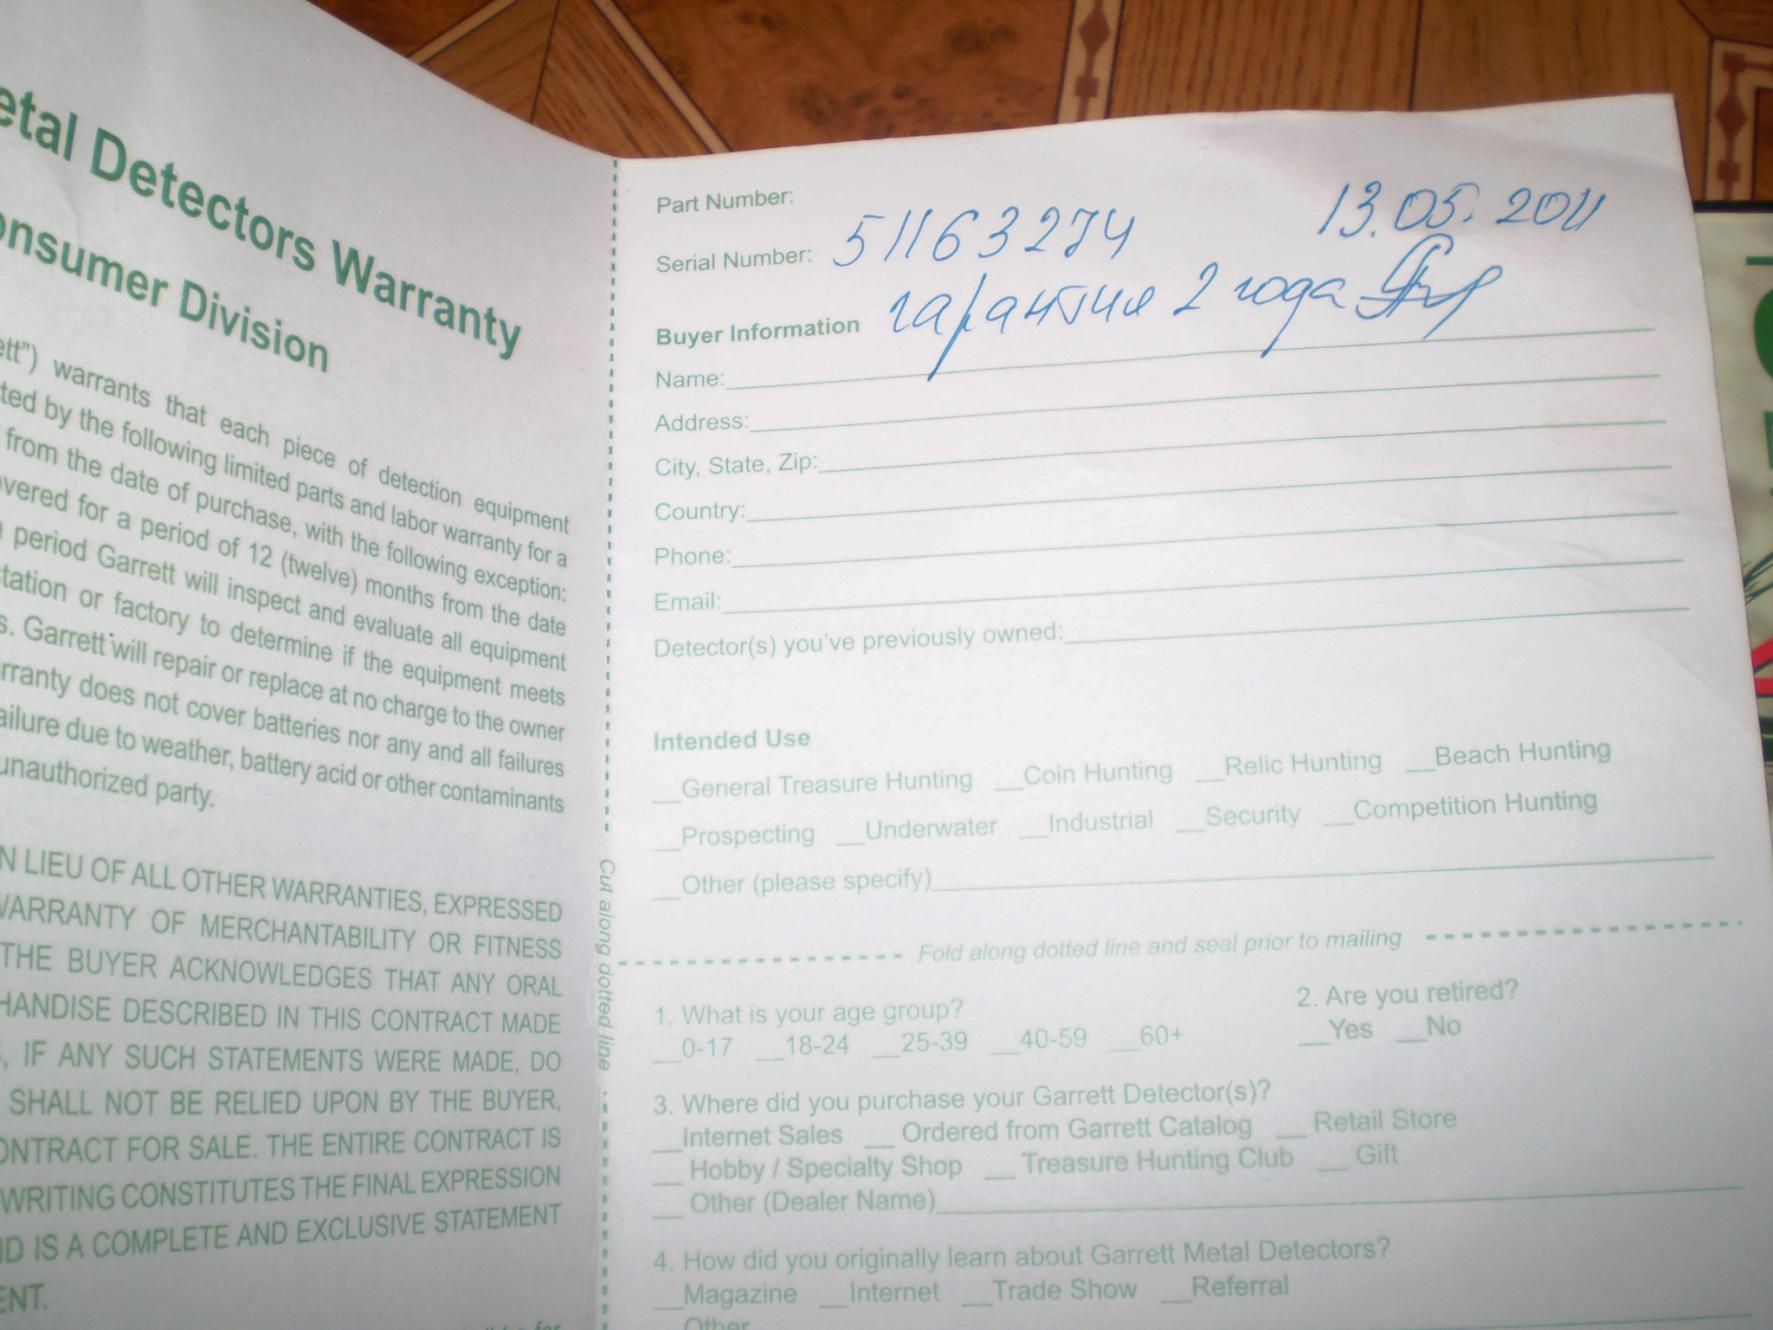 etal Detectors Warranty
onsumer Division
ett”) warrants that each piece of detection equipment
ted by the following limited parts and labor warranty for a
from the date of purchase, with the following exception:
vered for a period of 12 (twelve) months from the date
period Garrett will inspect and evaluate all equipment
tation or factory to determine if the equipment meets
s. Garrett will repair or replace at no charge to the owner
rranty does not cover batteries nor any and all failures
ailure due to weather, battery acid or other contaminants
unauthorized party.
N LIEU OF ALL OTHER WARRANTIES, EXPRESSED
WARRANTY OF MERCHANTABILITY OR FITNESS
THE BUYER ACKNOWLEDGES THAT ANY ORAL
HANDISE DESCRIBED IN THIS CONTRACT MADE
, IF ANY SUCH STATEMENTS WERE MADE, DO
SHALL NOT BE RELIED UPON BY THE BUYER,
ONTRACT FOR SALE. THE ENTIRE CONTRACT IS
WRITING CONSTITUTES THE FINAL EXPRESSION
ND IS A COMPLETE AND EXCLUSIVE STATEMENT
ENT.
Cut along dotted line
Part Number:
13.05.2011
Serial Number: 51163274
гарантия 2 года
Buyer Information
Name:
Address:
City, State, Zip:
Country:
Phone:
Email:
Detector(s) you’ve previously owned:
Intended Use
__General Treasure Hunting __Coin Hunting __Relic Hunting __Beach Hunting
__Prospecting __Underwater __Industrial __Security __Competition Hunting
__Other (please specify)
Fold along dotted line and seal prior to mailing
1. What is your age group?
__0-17 __18-24 __25-39 __40-59 __60+
2. Are you retired?
__Yes __No
3. Where did you purchase your Garrett Detector(s)?
__Internet Sales __ Ordered from Garrett Catalog __ Retail Store
__ Hobby / Specialty Shop __ Treasure Hunting Club __ Gift
__ Other (Dealer Name)
4. How did you originally learn about Garrett Metal Detectors?
__Magazine __Internet __Trade Show __Referral
Other